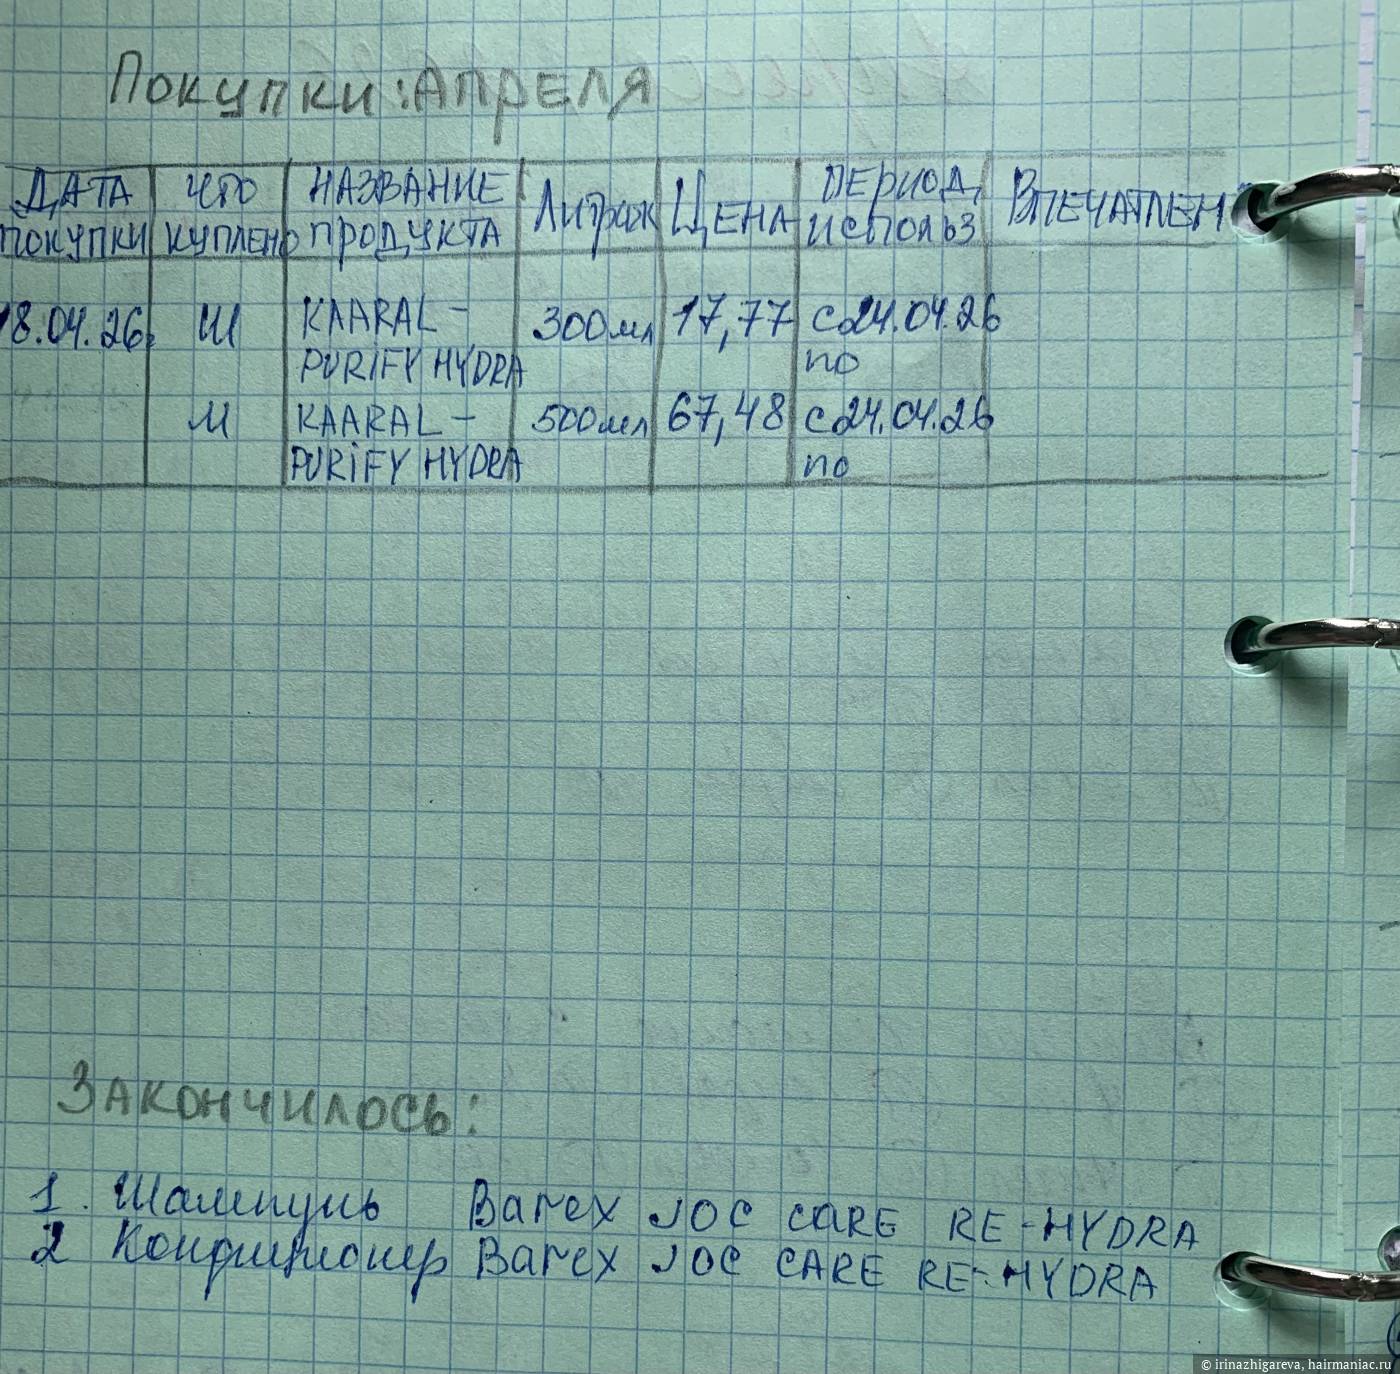 Покупки: Апреля
ДАТА ПОКУПКИ ЧТО КУПЛЕНО НАЗВАНИЕ ПРОДУКТА Литраж ЦЕНА ПЕРИОД использ ВПЕЧАТЛЕН
18.04.26г Ш KAARAL – 300мл 17,77 с 24.04.26
PURIFY HYDRA по
М KAARAL – 500мл 67,48 с 24.04.26
PURIFY HYDRA по
Закончилось:
1. Шампунь Barex JOC CARE RE-HYDRA
2 Кондиционер Barex JOC CARE RE-HYDRA
© irinazhigareva, hairmaniac.ru